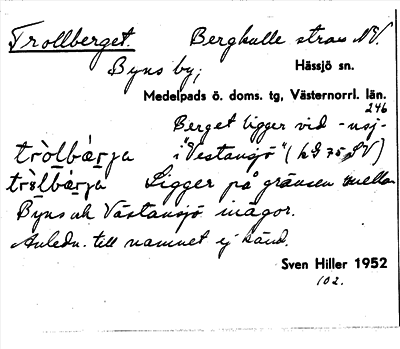 Trollberget. Bergkulle strax NV.
Byns by; Hässjö sn.
Medelpads ö. doms. tg, Västernorrl. län.
246
Berget ligger vid -nsj-
tròlbárja i "Vestansjö" (kG 75, SV)
tròlbárja Ligger på gränsen mellan
Byns och Västansjö inägor.
Anledn. till namnet ej känd.
Sven Hiller 1952
102.